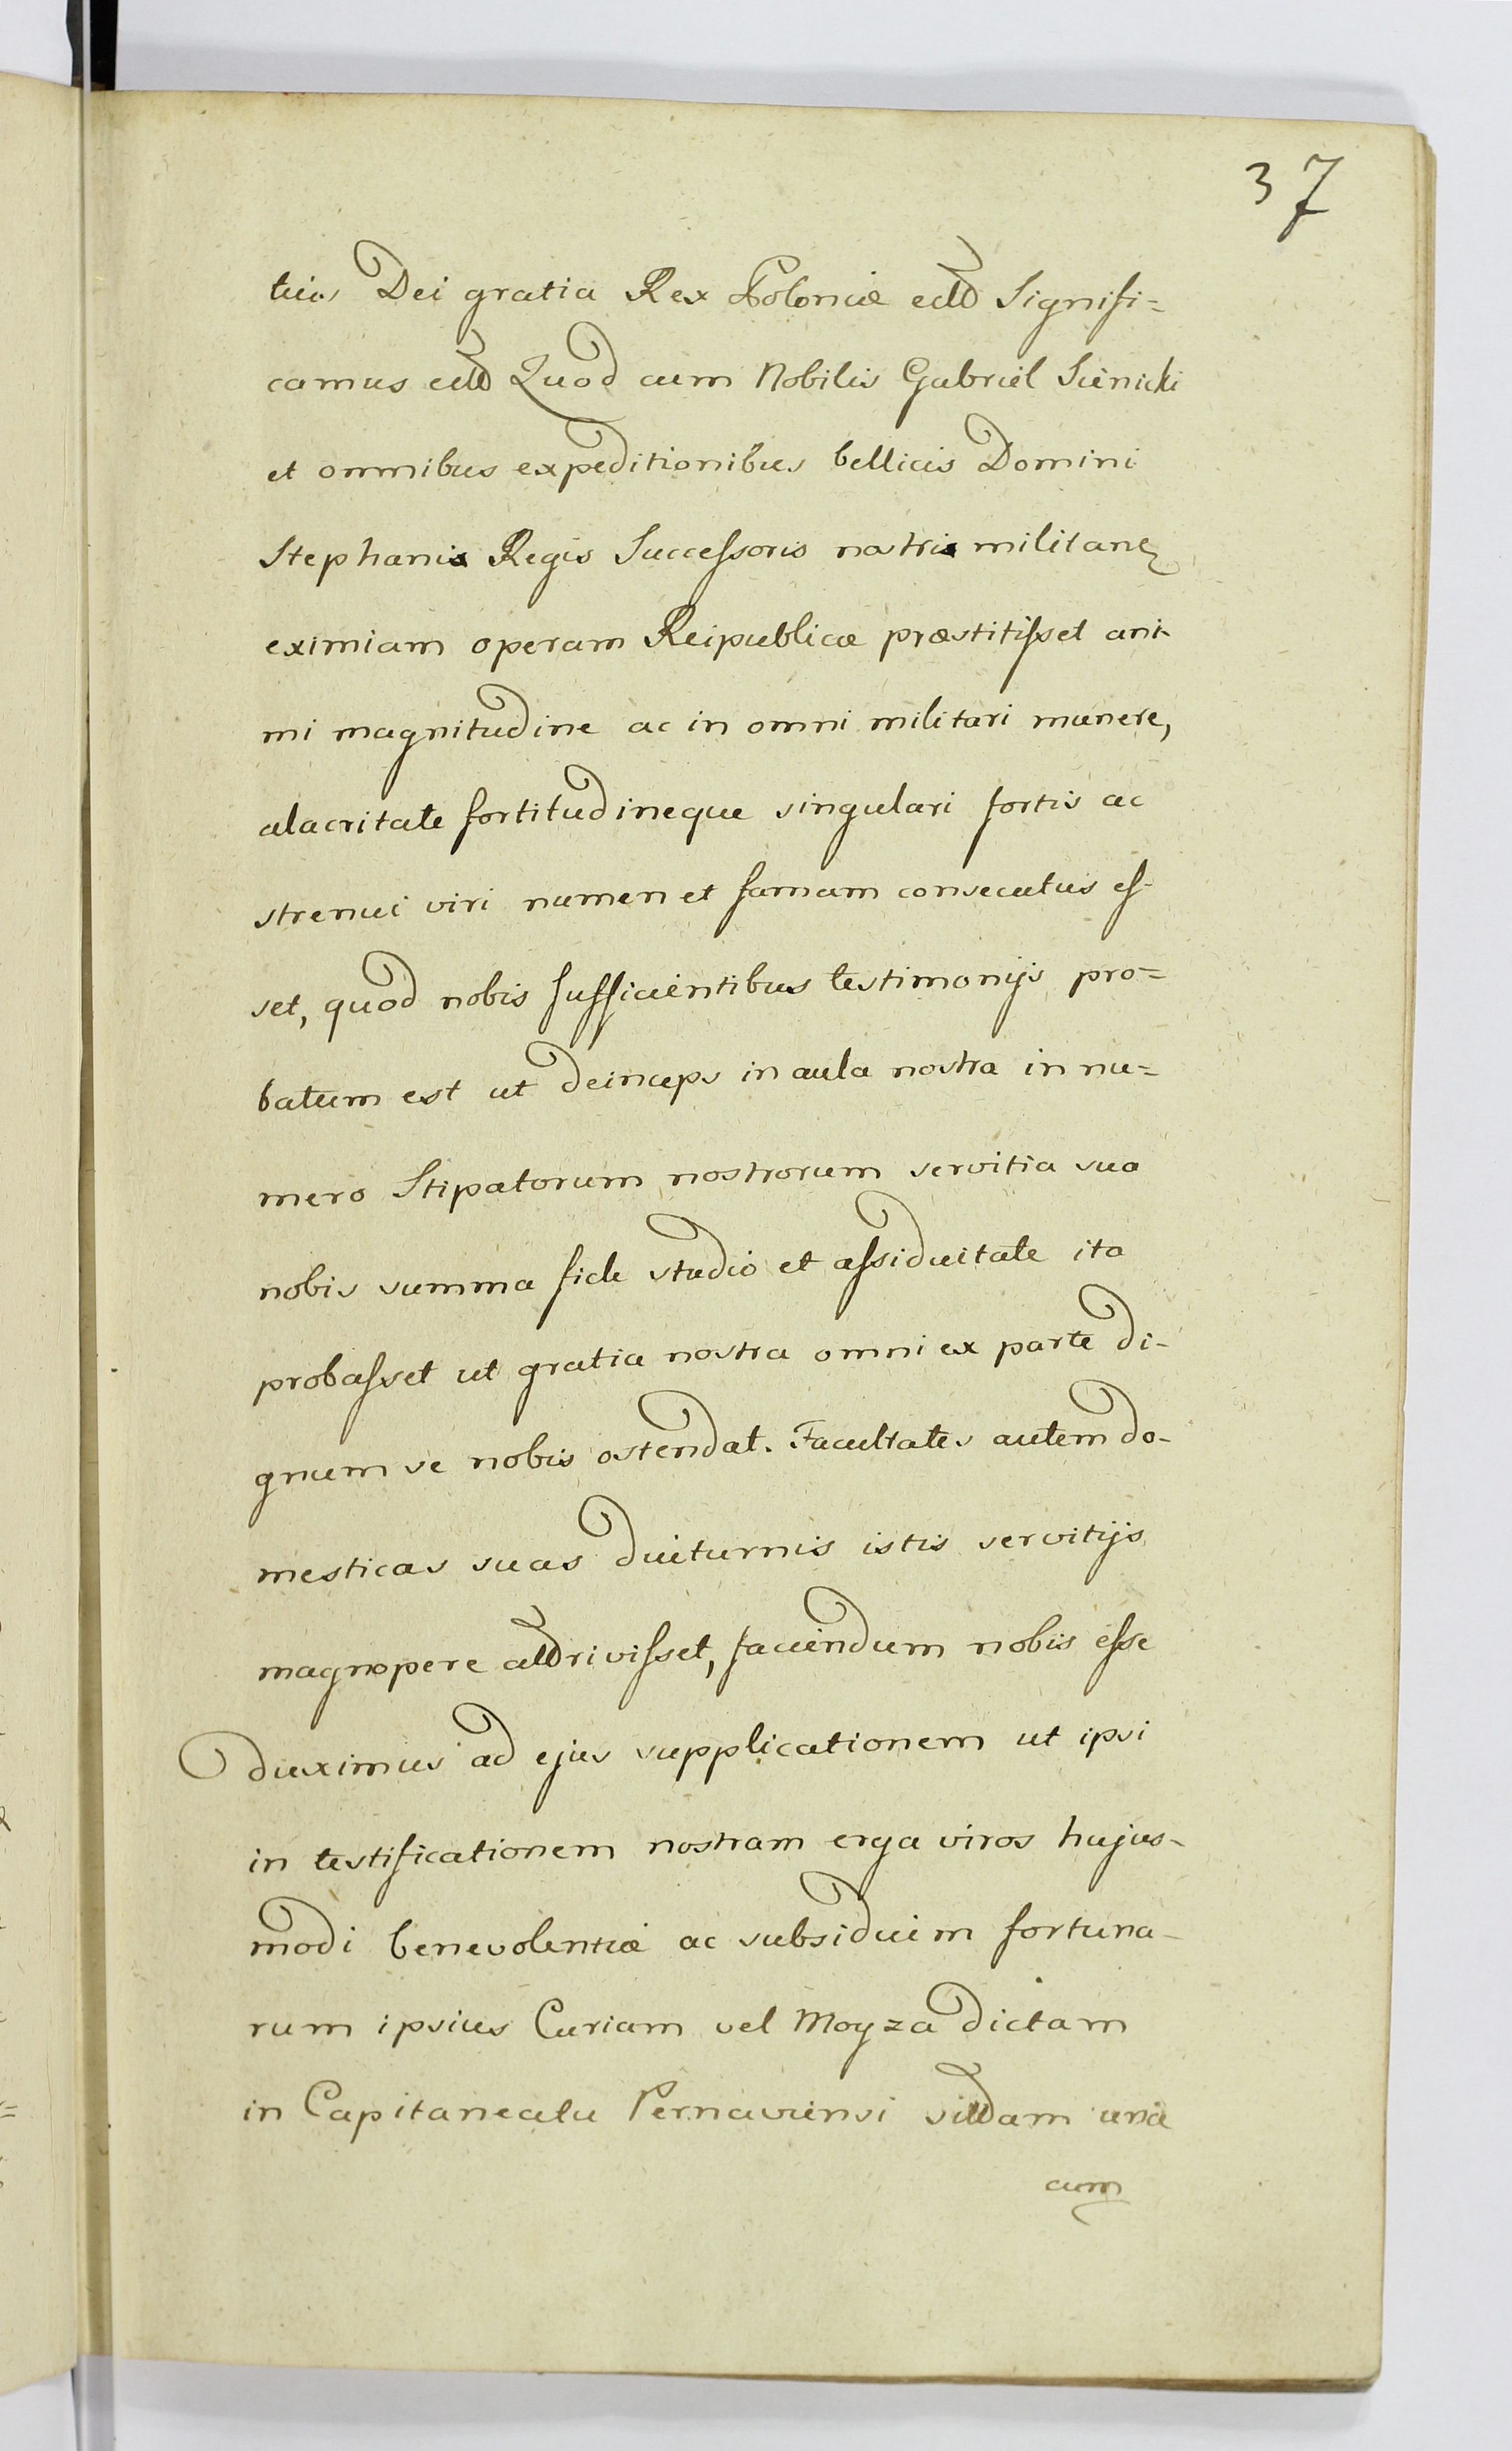 37
tius Dei gratia Rex Poloniæ ettt Signifi=
camus ettt Quod cum Nobilis Gabriel Sienicki
et omnibus expeditionibus bellicis Domini
Stephani Regis Successoris nostri militans
eximiam operam Reipublicæ præstitisset ani-
mi magnitudine ac in omni militari munere,
alacritate fortitudineque singulari fortis ac
strenui viri numen et famam consecutus es-
set, quod nobis sufficientibus testimonijs pro=
batum est ut deinceps in aula nostra in nu=
mero Stipatorum nostrorum servitia sua
nobis summa fide studio et assiduitate ita
probasset ut gratia nostra omni ex parte di-
gnum se nobis ostendat. Facultates autem do-
mesticas suas diuturnis istis servitijs
magnopere attrivisset, faciendum nobis esse
duximus ad ejus supplicationem ut ipsi
in testificationem nostram erga viros hujus-
modi benevolentiæ ac subsidium fortuna-
rum ipsius Curiam vel Moyza dictam
in Capitaneatu Pernaviensi sittam una
cum